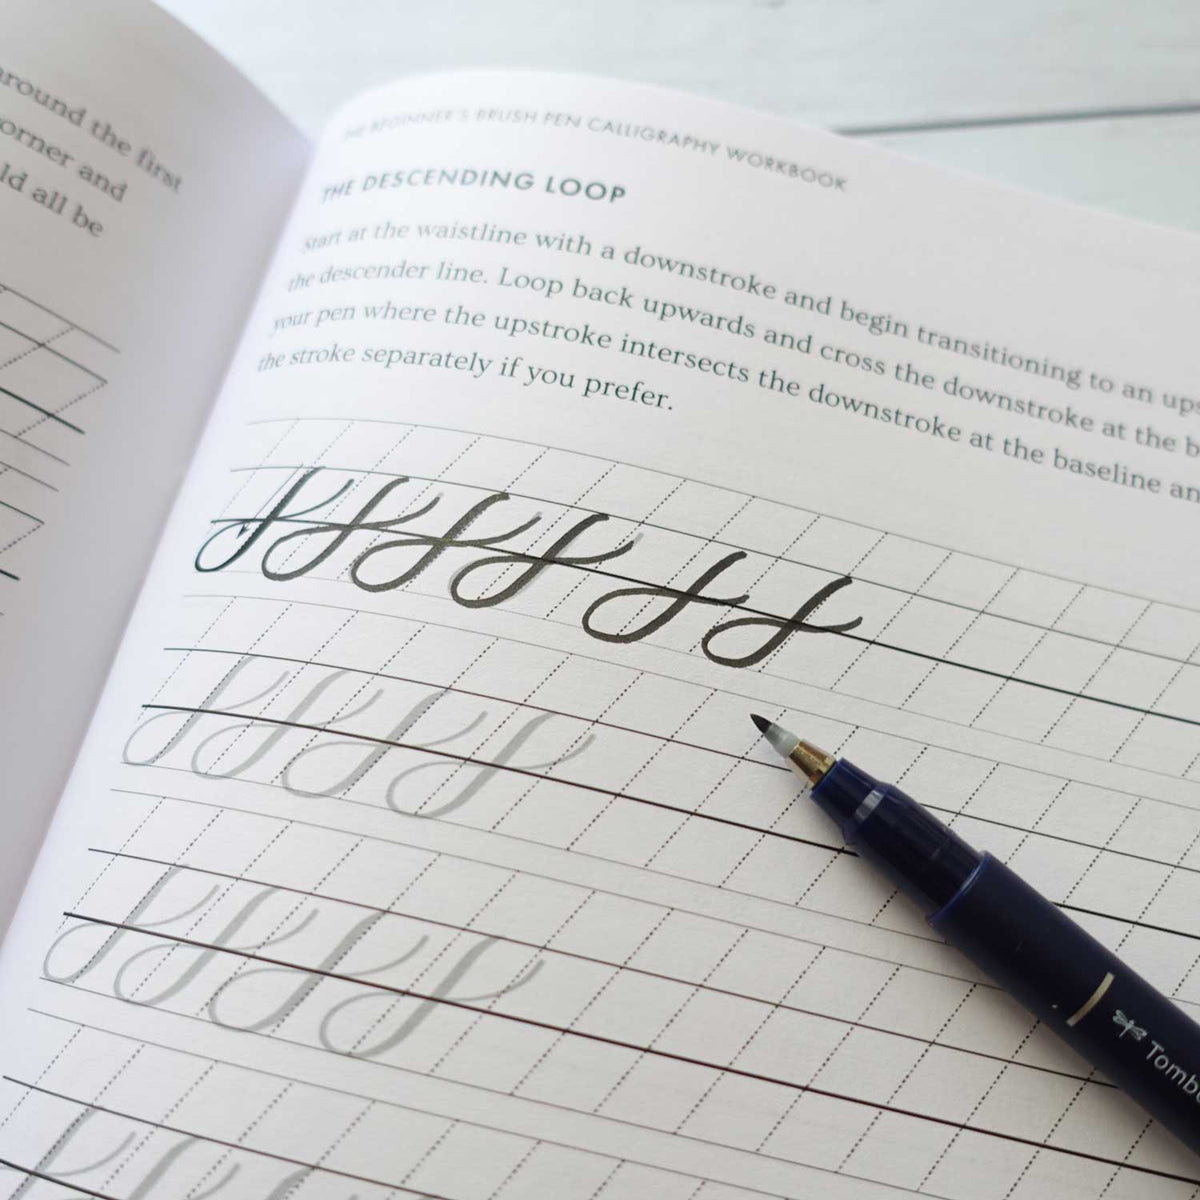 around the first
corner and
ld all be
THE BEGINNER'S BRUSH PEN CALLIGRAPHY WORKBOOK
THE DESCENDING LOOP
Start at the waistline with a downstroke and begin transitioning to an ups
the descender line. Loop back upwards and cross the downstroke at the b
your pen where the upstroke intersects the downstroke at the baseline an
the stroke separately if you prefer.
Tombo